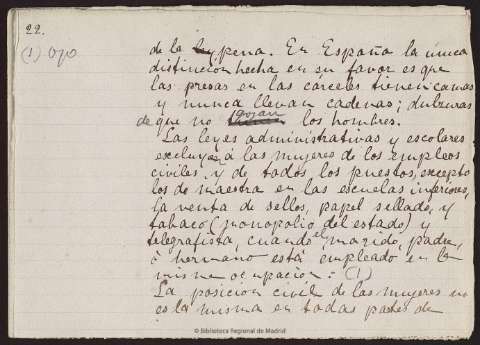 22.
(1) Ojo
de la ley pena. En España la única
distinción hecha en su favor es que
las presas en las cárceles tienen camas
y nunca llevan cadenas; dulzuras
de que no gozan los hombres.
Las leyes administrativas y escolares
excluyen á las mujeres de los empleos
civiles y de todos los puestos, excepto
los de maestra en las escuelas inferiores,
la venta de sellos, papel sellado, y
tabaco (monopolio del estado) y
telegrafista, cuando el marido, padre,
ó hermano está empleado en la
misma ocupación. (1)
La posición civil de las mujeres no
es la misma en todas partes de
© Biblioteca Regional de Madrid